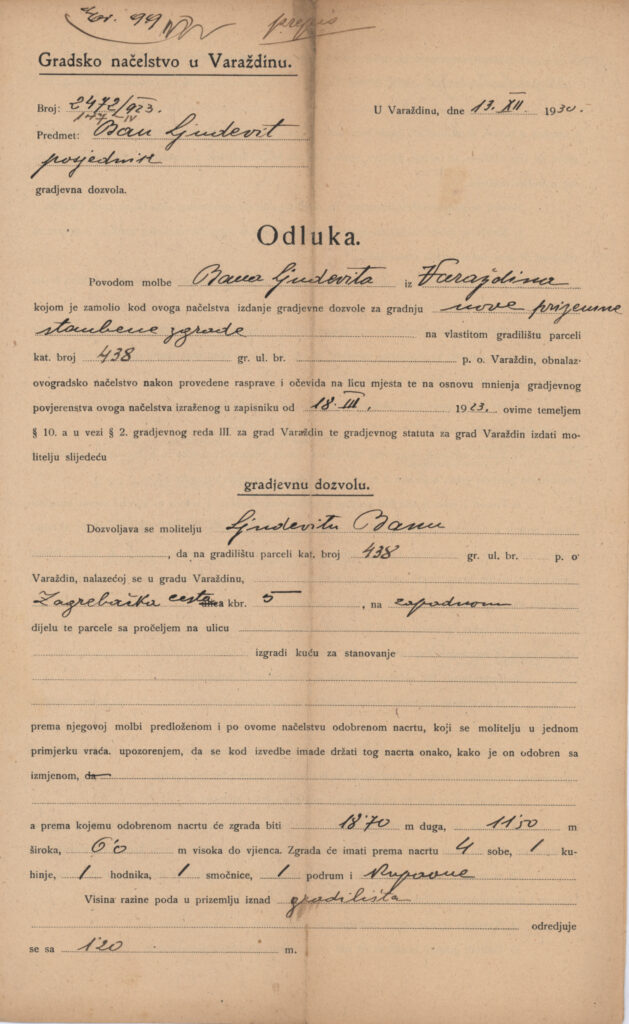 prepis
Gradsko načelstvo u Varaždinu.
Broj: 2472/923.
U Varaždinu, dne 13. XII. 1930.
Predmet: Ban Ljudevit
posjednik
gradjevna dozvola.
Odluka.
Povodom molbe Bana Ljudevita iz Varaždina
kojom je zamolio kod ovoga načelstva izdanje gradjevne dozvole za gradnju nove prizemne
stambene zgrade na vlastitom gradilištu parceli
kat. broj 438 gr. ul. br. p. o. Varaždin, obnalaz-
ovogradsko načelstvo nakon provedene rasprave i očevida na licu mjesta te na osnovu mnienja gradjevnog
povjerenstva ovoga načelstva izraženog u zapisniku od 18. III. 1923. ovime temeljem
§ 10. a u vezi § 2. gradjevnog reda III. za grad Varaždin te gradjevnog statuta za grad Varaždin izdati mo-
litelju slijedeću
gradjevnu dozvolu.
Dozvoljava se molitelju Ljudevitu Banu
, da na gradilištu parceli kat. broj 438 gr. ul. br. p. o
Varaždin, nalazećoj se u gradu Varaždinu,
Zagrebačka cesta kbr. 5, na zapadnom
dijelu te parcele sa pročeljem na ulicu
izgradi kuću za stanovanje
prema njegovoj molbi predloženom i po ovome načelstvu odobrenom nacrtu, koji se molitelju u jednom
primjerku vraća. upozorenjem, da se kod izvedbe imade držati tog nacrta onako, kako je on odobren sa
izmjenom, da
a prema kojemu odobrenom nacrtu će zgrada biti 18'70 m duga, 11'50 m
široka, 6'0 m visoka do vjienca. Zgrada će imati prema nacrtu 4 sobe, 1 ku-
hinje, 1 hodnika, 1 smočnice, 1 podrum i kupaone
Visina razine poda u prizemlju iznad gradilišta
odredjuje
se sa 1'20 m.